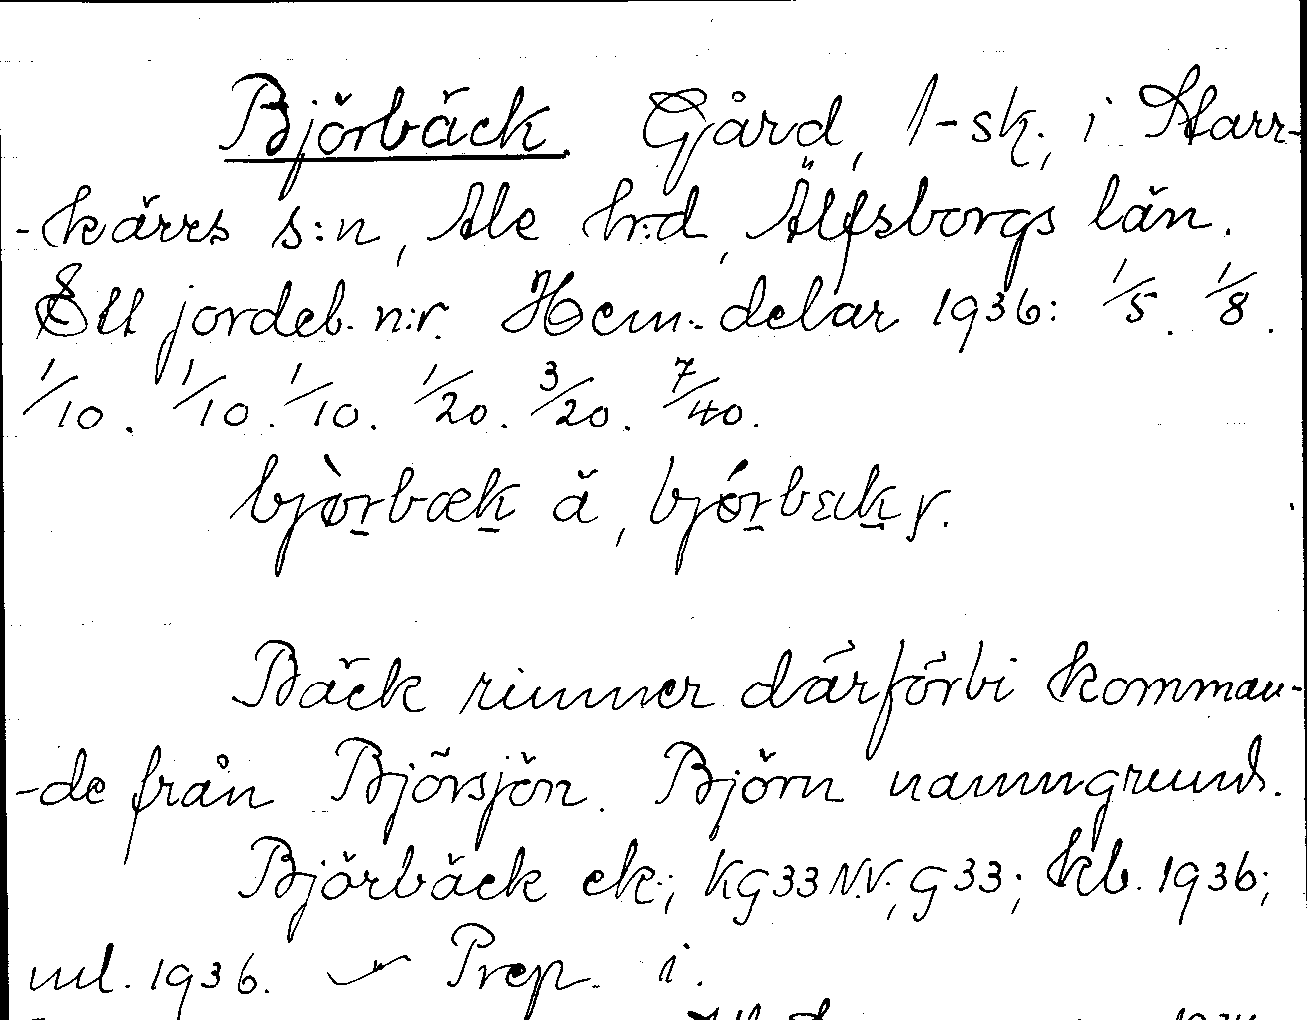 Björbäck. Gård, 1-sk., i Starr-
-kärrs s:n, Ale h:d, Älfsborgs län.
Ett jordeb. n:r. Hem.-delar 1936: 1/5. 1/8.
1/10. 1/10. 1/10. 1/20. 3/20. 7/40.
bjør̠bæk̠ ä, bjør̠bɛık̠ y.
Bäck rinner därförbi komman-
-de från Björsjön. Björn namngrund.
Björbäck ek.; KG33NV.; G33; kb. 1936;
ml. 1936. Prep. i.